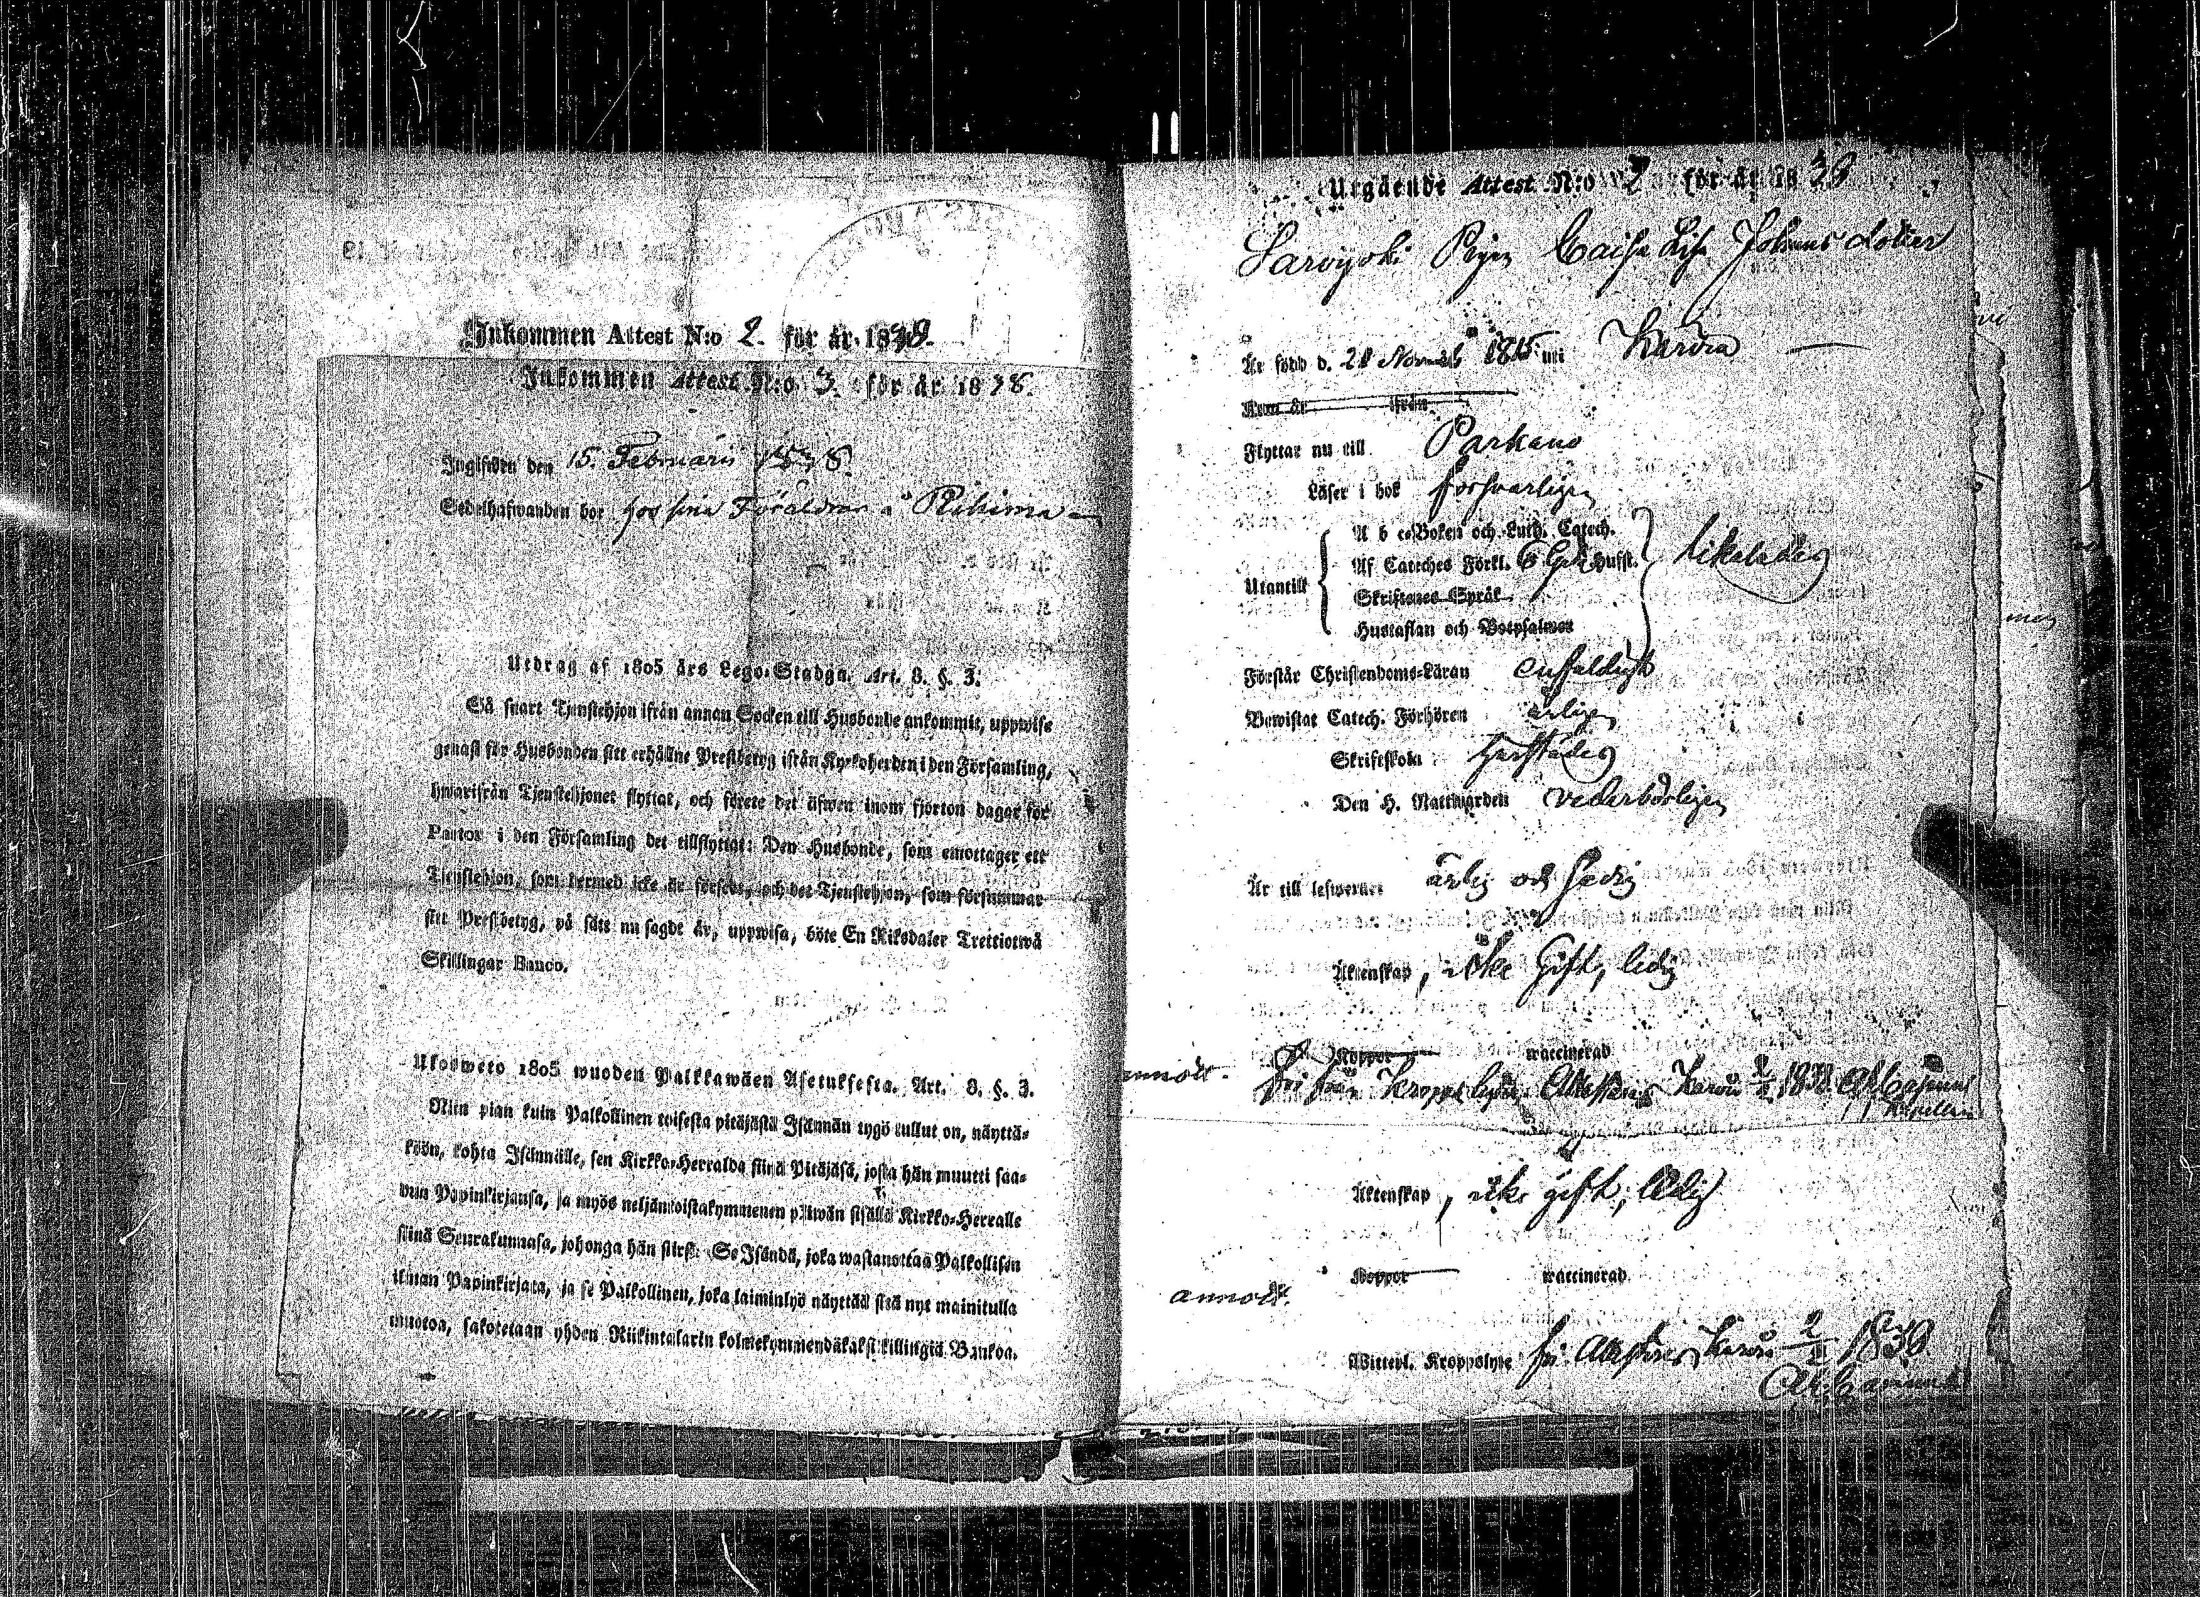 Inkommen Attest N:o 2. för år 1839.
Inkommen Attest N:o 3. för år 1838.
Ingifwen den 15. Februarii 1838.
Sedelhafwanden bor hos sina Föräldrar å
Utdrag af 1805 års Lego-Stadga. Art. 8. §. 3.
Så snart Tjenstehjon ifrån annan Socken till Husbonde ankommit, uppwise
genast för Husbonden sitt erhållne Prestbetyg ifrån Kyrkoherden i den Församling,
hwarifrån Tjenstehjonet flyttat, och förete det äfwen inom fjorton dagar för
Pastor i den Församling det tillflyttat: Den Husbonde, som emottager ett
Tjenstehjon, som dermed icke är försedt, och det Tjenstehjon, som försummar
sitt Prestbetyg, på sätt nu sagdt är, uppwisa, böte En Riksdaler Trettiotwå
Skillingar Banco.
Ulosweto 1805 wuoden Palkkawäen Asetuksesta. Art. 8. §. 3.
Niin pian kuin Palkollinen toisesta pitäjästä Isännän tygö tullut on, näyttä-
köön, kohta Isännälle, sen Kirkko-Herralda siinä Pitäjäsä, josta hän muutti saa-
dun Papinkirjansa, ja myös neljäntoistakymmenen päiwän sisällä Kirkko-Herralle
siinä Seurakunnasa, johonga hän siirsi: Se Isändä, joka wastanottaa Palkollisen
ilman Papinkirjata, ja se Palkollinen, joka laiminlyö näyttää sitä nyt mainitulla
muotoa, sakotetaan yhden Riikintalarin kolmekymmendäkaksi killingiä Bankoa.
Utgående Attest N:o 2 för år 1838
Sarvijoki Pigan Caisa Lisa Johansdotter
Är född d. 21 Novemb 1815 uti Karvia
Kom år ifrån
Flyttar nu till Parkano
Läser i bok försvarligen
A b c-Boken och Luth. Catech.
Utantill Af Cateches Förkl. Hufst. likaledes
Skriftenes Språk
Hustaflan och Botpsalmer
Förstår Christendoms-Läran enfaldigt
Bewistat Catech. Förhören årligen
Skriftskola
Den H. Nattward en vederbörligen
Är till lefwernet ärlig och sedig
Äktenskap, icke Gift, ledig
Koppor waccinerad
annoté. fri från Kroppslyte. Attesteras Karvia 2/2 1838.
Äktenskap, icke gift, ledig
Koppor waccinerad
annoté.
Wittert. Kroppslyte fri. Attesteras Karvia 2/2 1838